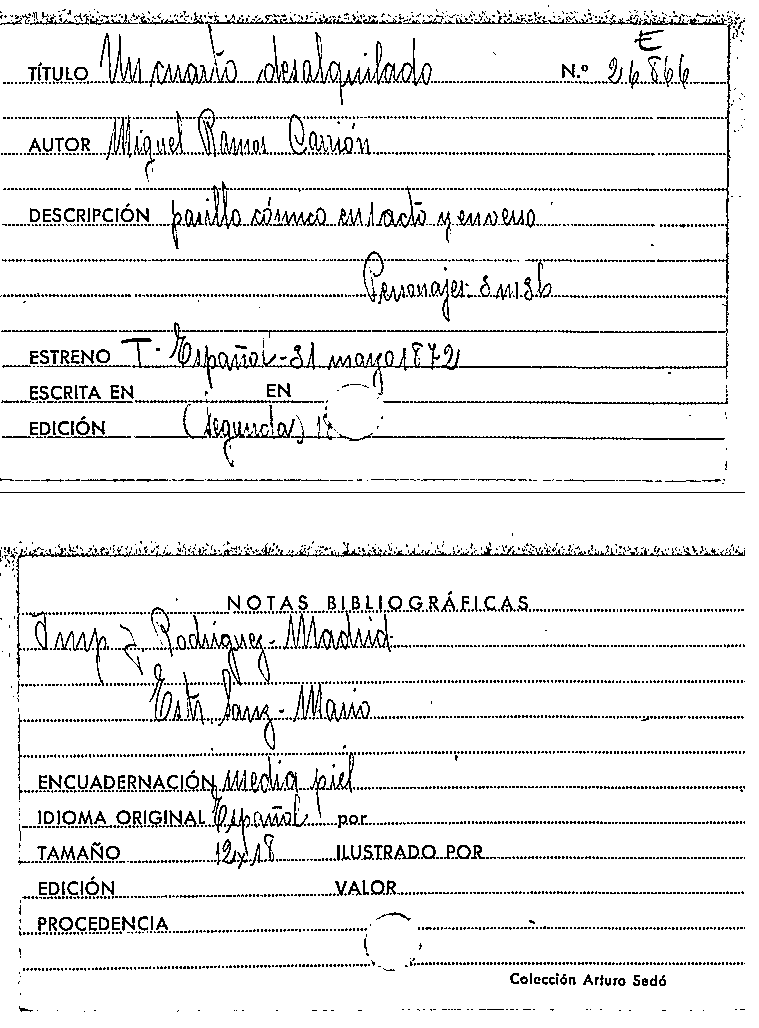 E
TÍTULO Un cuarto desalquilado N.º 26.866
AUTOR Miguel Ramos Carrión
DESCRIPCIÓN pasillo cómico en 1 acto y en verso
Personajes- 3 m 3 h
ESTRENO T. Español- 31 mayo 1872
ESCRITA EN EN
EDICIÓN (segunda) 18
NOTAS BIBLIOGRÁFICAS
Imp J. Rodríguez- Madrid
Estr Sanz- Mario
ENCUADERNACIÓN media piel
IDIOMA ORIGINAL Español por
TAMAÑO 12x18 ILUSTRADO POR
EDICIÓN VALOR
PROCEDENCIA
Colección Arturo Sedó